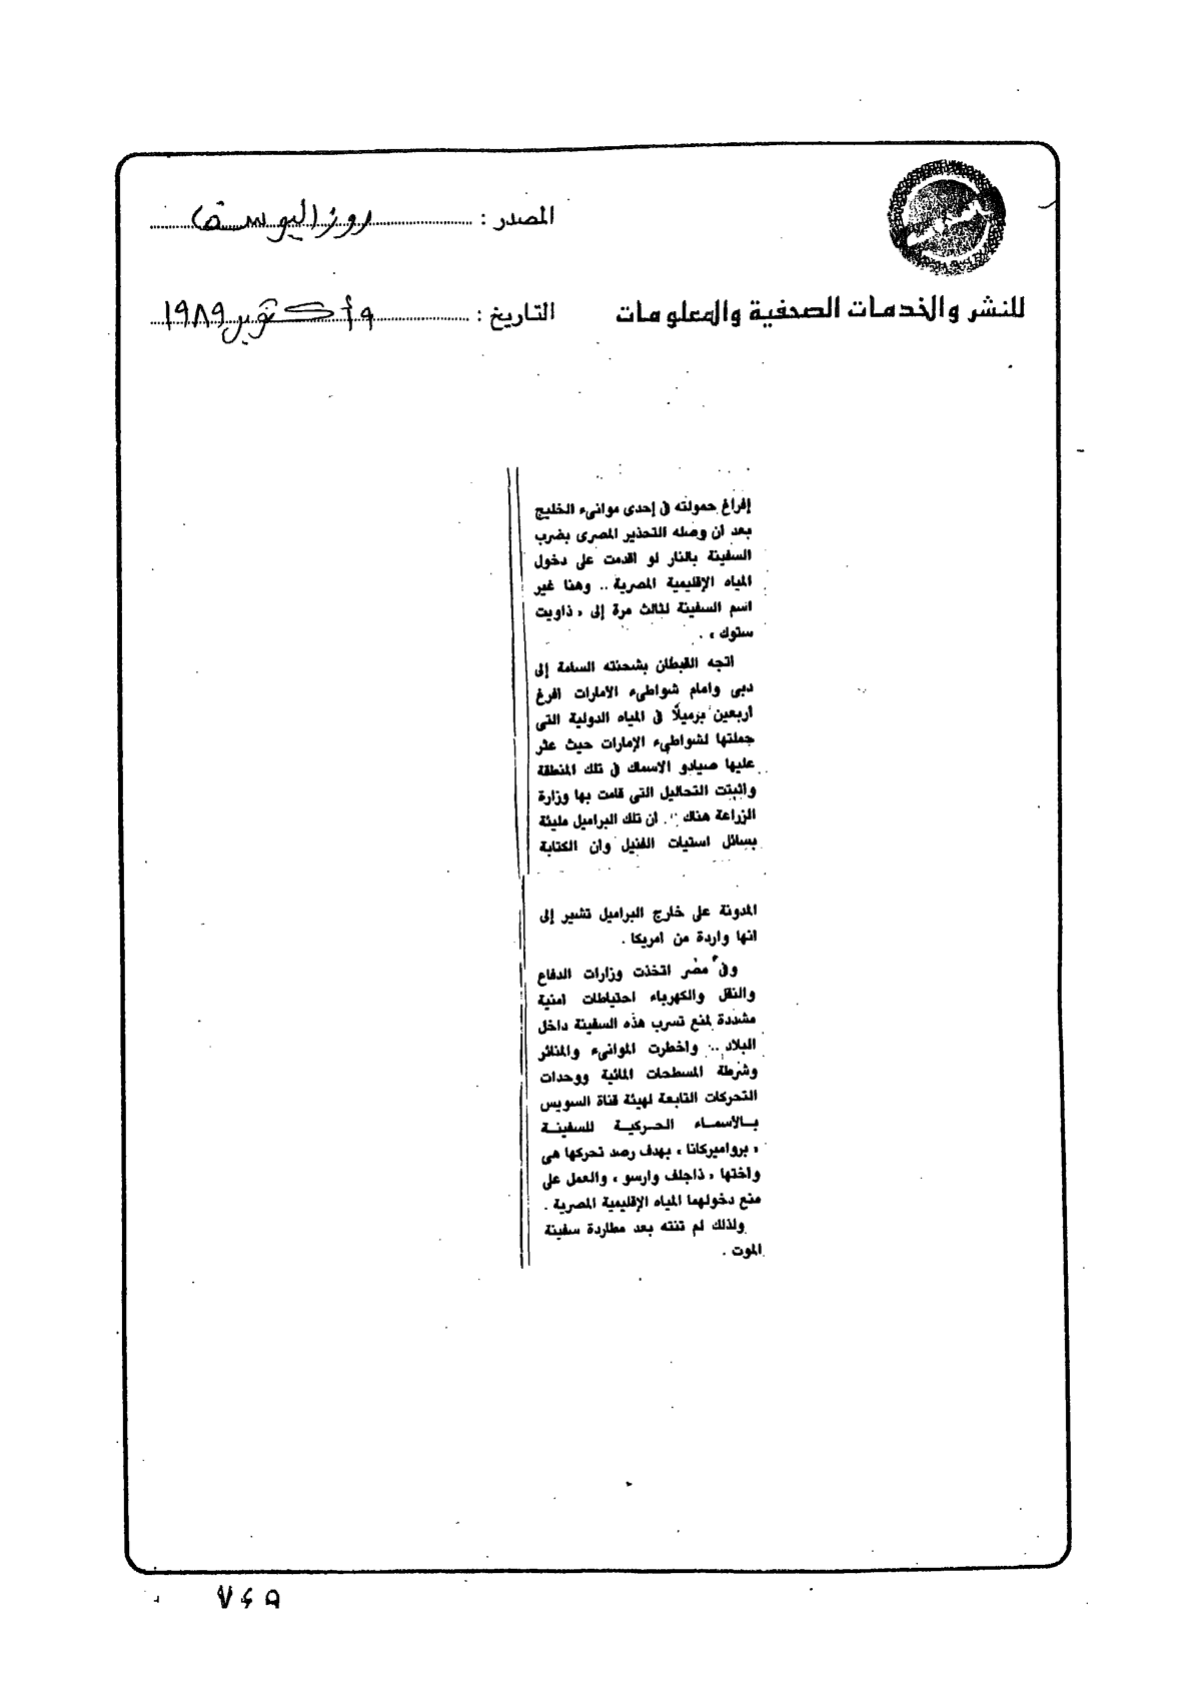 المصدر : روز اليوسف
للنشر والخدمات الصحفية والمعلومات
التاريخ : ٩ أكتوبر ١٩٨٩
إفراغ حمولته فى إحدى موانىء الخليج
بعد ان وصله التحذير المصرى بضرب
السفينة بالنار لو اقدمت على دخول
المياه الإقليمية المصرية .. وهنا غير
اسم السفينة لثالث مرة إلى « ذاويت
ستوك » .
اتجه القبطان بشحنته السامة إلى
دبى وامام شواطىء الامارات افرغ
اربعين برميلًا فى المياه الدولية التى
حملتها لشواطىء الإمارات حيث عثر
عليها صيادو الاسماك فى تلك المنطقة
واثبتت التحاليل التى قامت بها وزارة
الزراعة هناك .. ان تلك البراميل مليئة
بسائل استيات الفنيل وان الكتابة
المدونة على خارج البراميل تشير إلى
انها واردة من امريكا .
وفى مصر اتخذت وزارات الدفاع
والنقل والكهرباء احتياطات امنية
مشددة لمنع تسرب هذه السفينة داخل
البلاد .. واخطرت الموانىء والمنائر
وشرطة المسطحات المائية ووحدات
التحركات التابعة لهيئة قناة السويس
بالأسماء الحركية للسفينة
« برواميركانا » بهدف رصد تحركها هى
واختها « ذاجلف وارسو » والعمل على
منع دخولهما المياه الإقليمية المصرية .
ولذلك لم تنته بعد مطاردة سفينة
الموت .